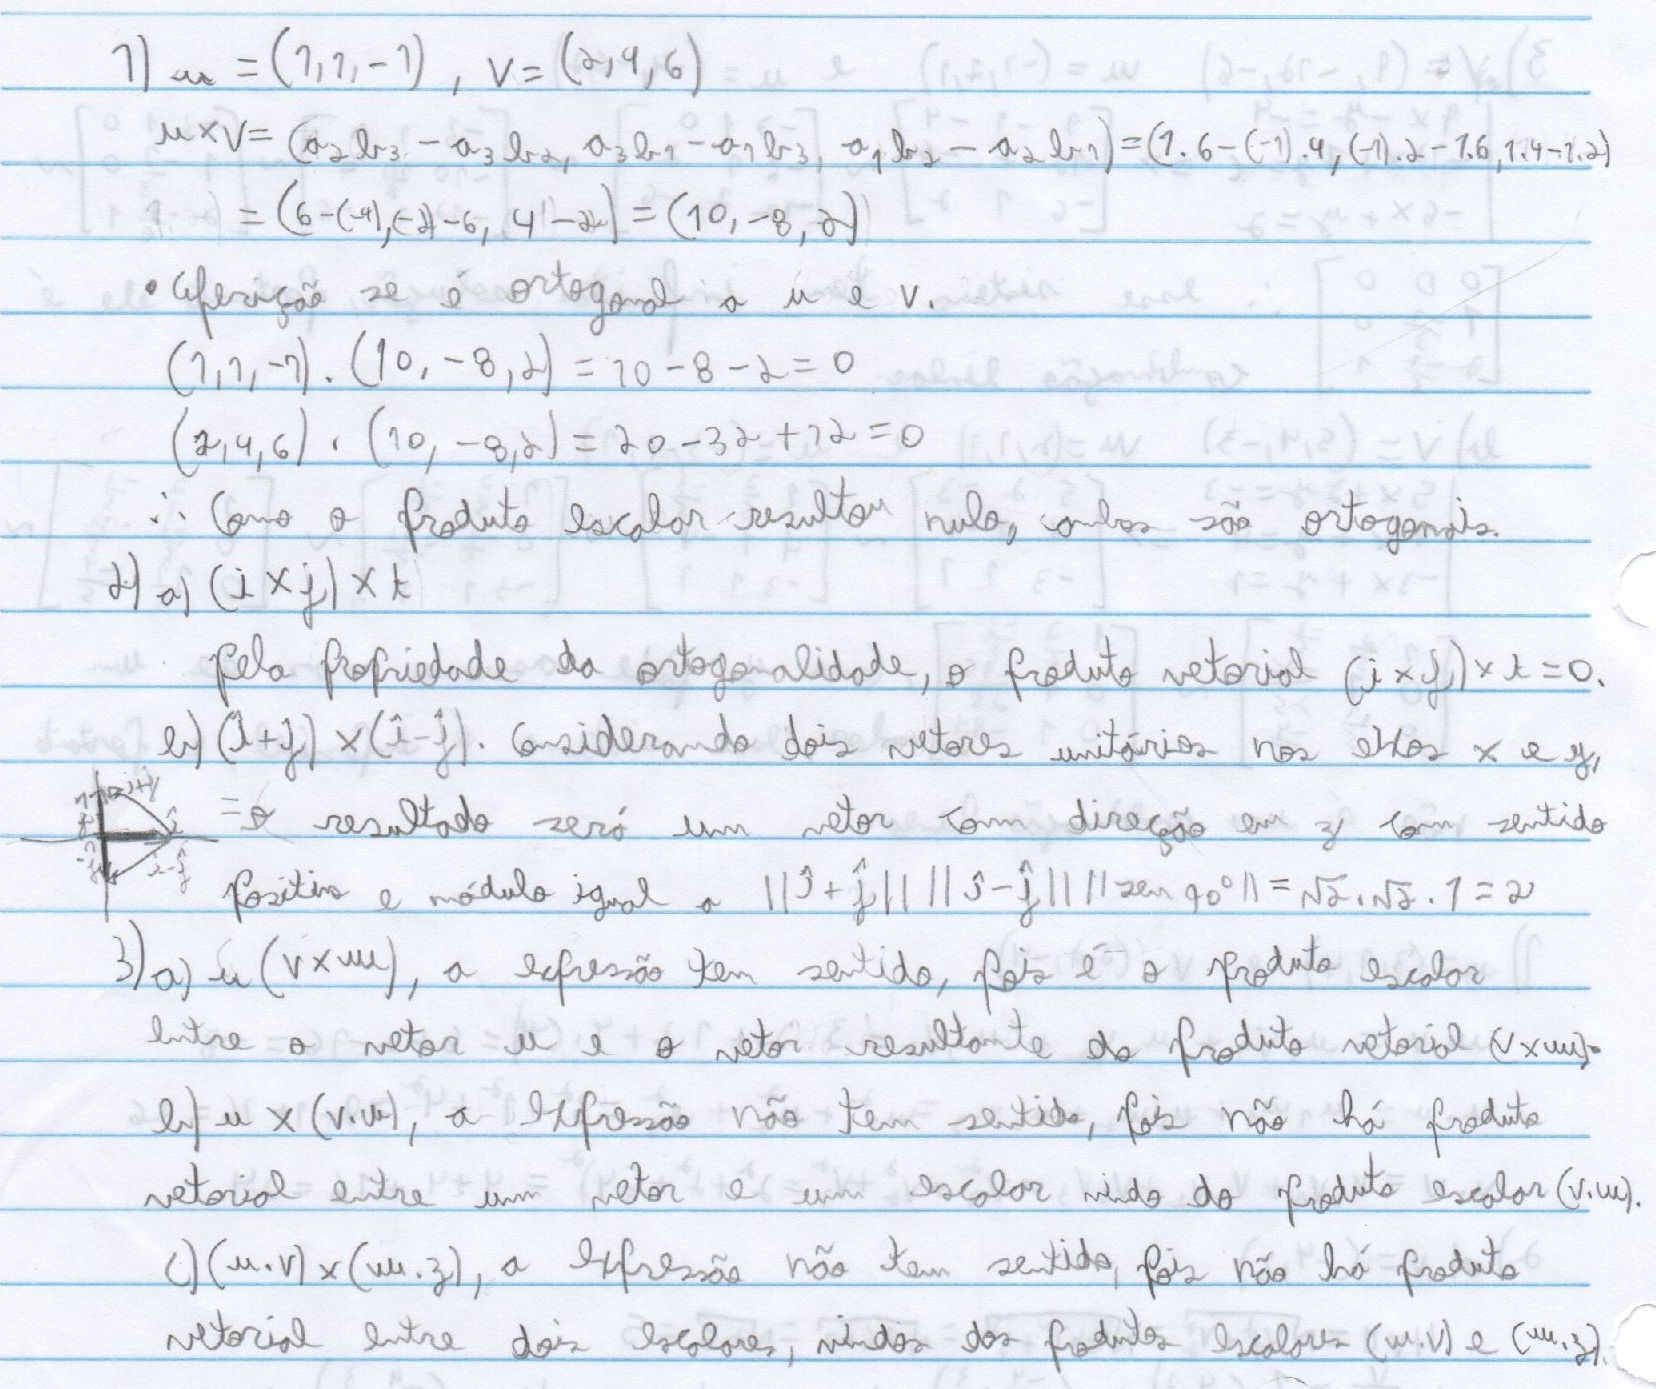 1) u = (1,1,-1), v = (2,4,6)
u×v = (a₂b₃ - a₃b₂, a₃b₁ - a₁b₃, a₁b₂ - a₂b₁) = (1.6-(-1).4, (-1).2-1.6, 1.4-1.2)
= (6-(-4), (-2)-6, 4-2) = (10, -8, 2)
• Aferição se é ortogonal a u e v.
(1,1,-1) . (10, -8, 2) = 10 - 8 - 2 = 0
(2,4,6) . (10, -8, 2) = 20 - 32 + 12 = 0
∴ Como o produto escalar resultou nulo, ambos são ortogonais.
2) a) (i × j) × k
Pela propriedade da ortogonalidade, o produto vetorial (i × j) × k = 0.
b) (î+ĵ) × (î-ĵ). Considerando dois vetores unitários nos eixos x e y,
= o resultado será um vetor com direção em z com sentido
positivo e módulo igual a ||î+ĵ|| ||î-ĵ|| ||sen 90°|| = √2.√2.1 = 2
3) a) u (v×w), a expressão tem sentido, pois é o produto escalar
entre o vetor u e o vetor resultante do produto vetorial (v×w).
b) u × (v.w), a expressão não tem sentido, pois não há produto
vetorial entre um vetor e um escalar vindo do produto escalar (v.w).
c) (u.v) × (w.z), a expressão não tem sentido, pois não há produto
vetorial entre dois escalares, vindos dos produtos escalares (u.v) e (w.z).